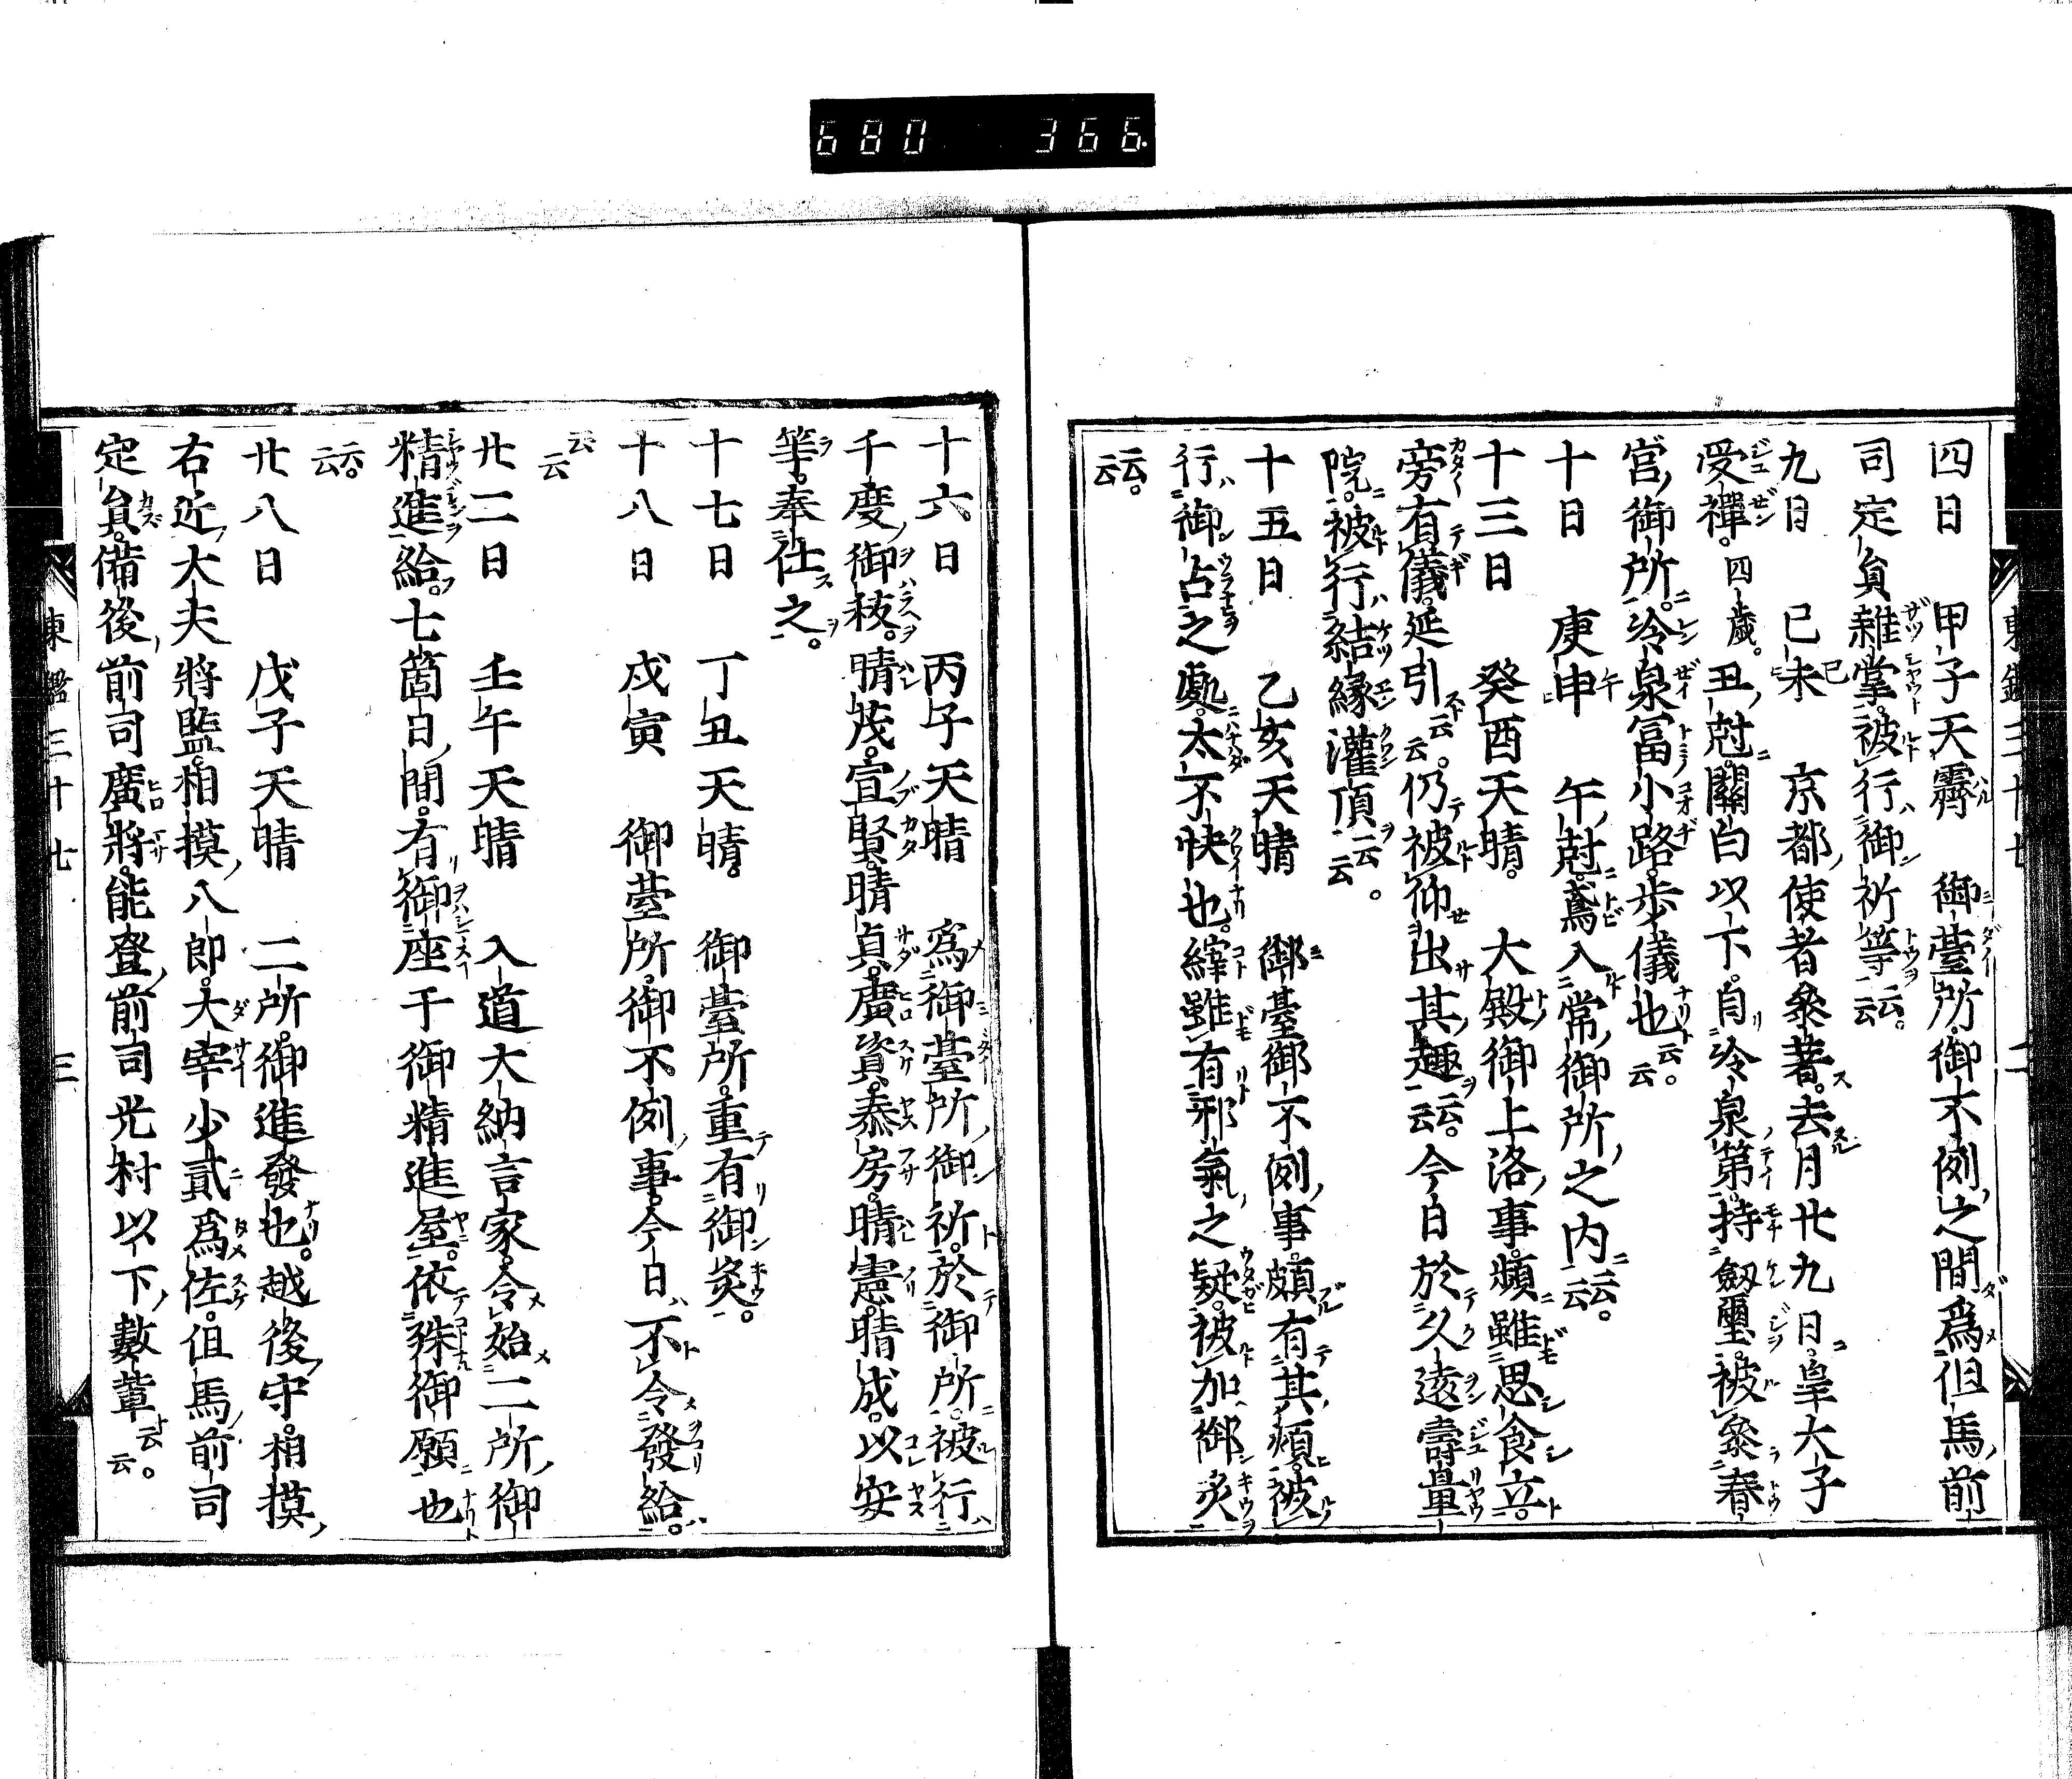 680 366
四日 甲子天霽 御臺所御不例之間爲但馬前
司定員雜掌被行御祈等云云
九日 己未 京都使者參著去月廿九日皇太子
受禪四歳丑尅關白以下自冷泉第持劔璽被參春
宮御所冷泉冨小路歩儀也云云
十日 庚申 午尅鳶入常御所之内云云
十三日 癸酉天晴 大殿御上洛事頻雖思食立
旁有儀延引云云仍被仰出其趣云云今日於久遠壽量
院被行結縁灌頂云云
十五日 乙亥天晴 御臺御不例事頗有其煩被
行御占之處太不快也縡雖有邪氣之疑被加御灸
云云
十六日 丙子天晴 爲御臺所御祈於御所被行
千度御秡晴茂宣賢晴貞廣資泰房晴憲晴成以安
等奉仕之
十七日 丁丑天晴 御臺所重有御灸
十八日 戊寅 御臺所御不例事今日不令發給
云云
廿二日 壬午天晴 入道大納言家令始二所御
精進給七箇日間有御座于御精進屋依殊御願也
云云
廿八日 戊子天晴 二所御進發也越後守相摸
右近大夫將監相摸八郎大宰少貳爲佐但馬前司
定員備後前司廣將能登前司光村以下數輩云云
東鑑三十七 三